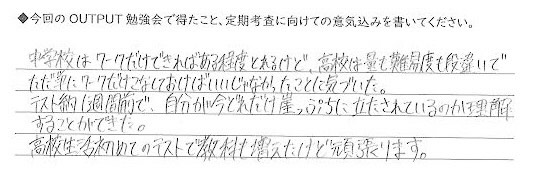 ◆今回の OUTPUT 勉強会で得たこと、定期考査に向けての意気込みを書いてください。
中学校はワークだけできればある程度とれるけど、高校は量も難易度も段違いで
ただ単にワークだけこなしておけばいいじゃなかったことに気づいた。
テスト約1週間前で、自分が今どれだけ崖っぷちに立たされているのか理解
することができた。
高校生活初めてのテストで教科も増えたけど頑張ります。